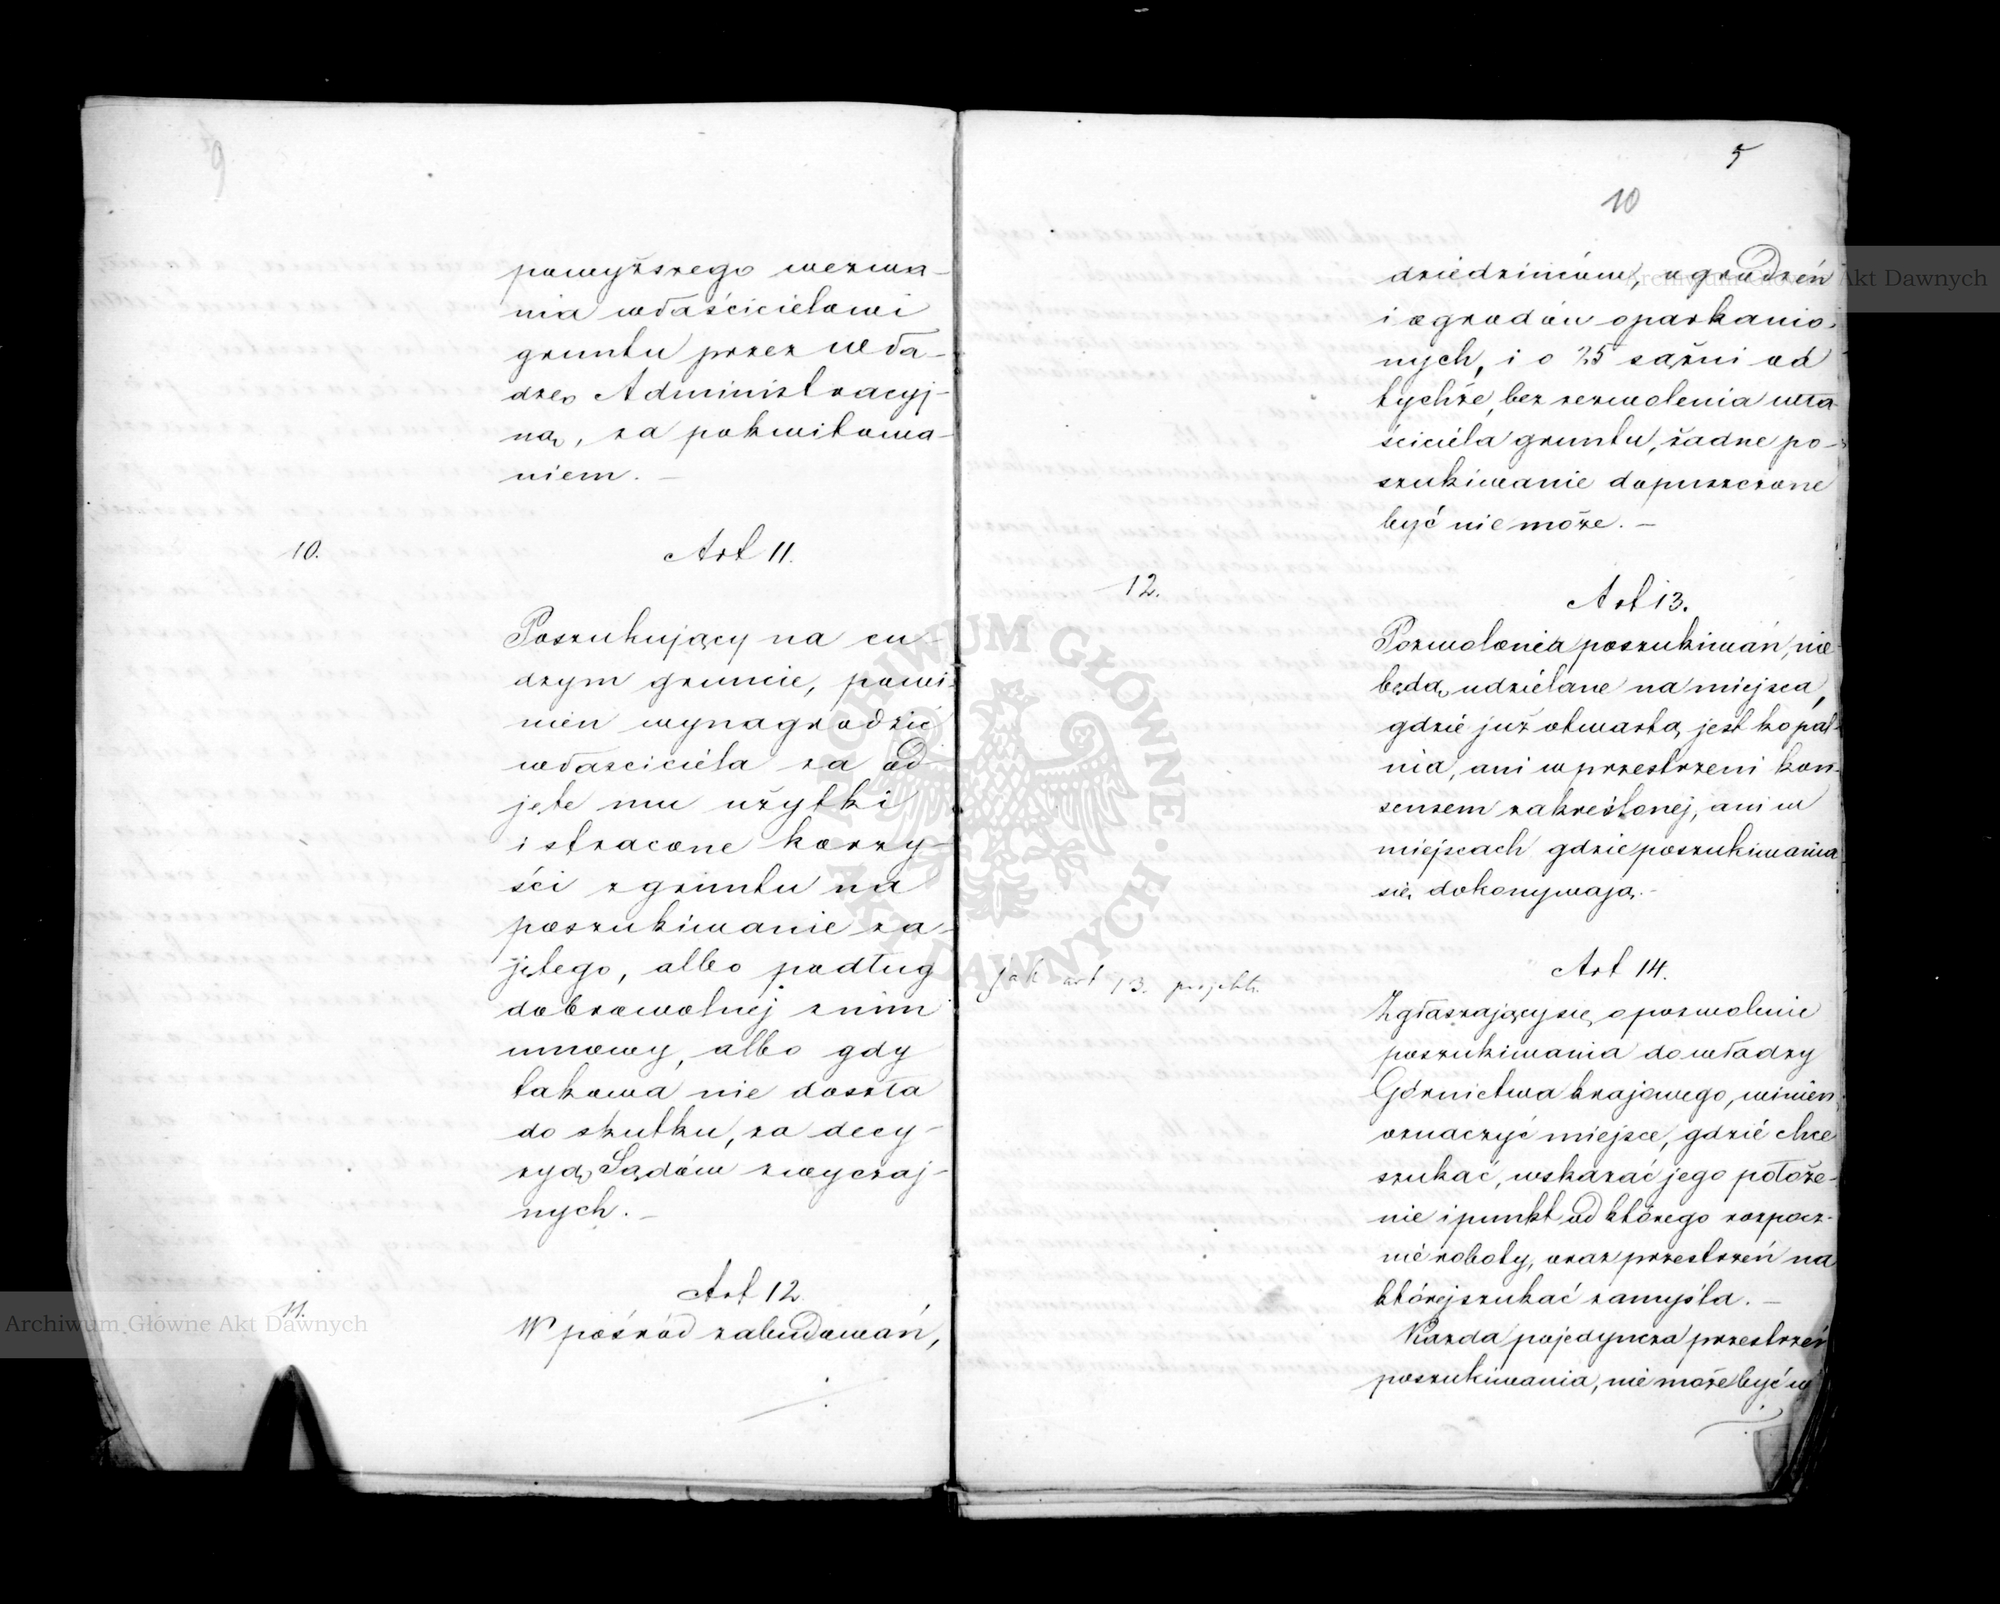 9
powyższego wezwa-
nia właścicielowi
gruntu przez Wła-
dzę Administracyj-
ną, za pokwitowa-
niem. —
10.
Art 11.
Poszukujący na cu-
dzym gruncie, powi-
nien wynagrodzić
właściciela za od-
jęte mu użytki
i stracone korzy-
ści z gruntu na
poszukiwanie za-
jętego, albo podług
dobrowolnej z nim
umowy, albo gdy
takowa nie doszła
do skutku, za decy-
zyą Sądów zwyczaj-
nych. —
11.
Art 12.
W pośród zabudowań,
5
10
dziedzińców, ogrodzeń
i ogrodów oparkanio-
nych, i o 25 sążni od
tychże, bez zezwolenia wła-
ściciela gruntu, żadne po-
szukiwanie dopuszczone
być nie może. —
12.
Art 13.
Pozwolenia poszukiwań, nie
będą udzielane na miejsca,
gdzie już otwartą jest kopal-
nia, ani w przestrzeni kon-
sensem zakreślonej, ani w
miejscach gdzie poszukiwania
się dokonywają. —
Jak art 13. projektu.
Art 14.
Zgłaszający się o pozwolenie
poszukiwania do władzy
Górnictwa krajowego, winien
oznaczyć miejsce, gdzie chce
szukać, wskazać jego położe-
nie i punkt od którego rozpocz-
nie roboty, oraz przestrzeń na
której szukać zamyśla. —
Każda pojedyncza przestrzeń
poszukiwania, nie może być w
Archiwum Główne Akt Dawnych
Archiwum Główne Akt Dawnych
ARCHIWUM GŁÓWNE AKT DAWNYCH